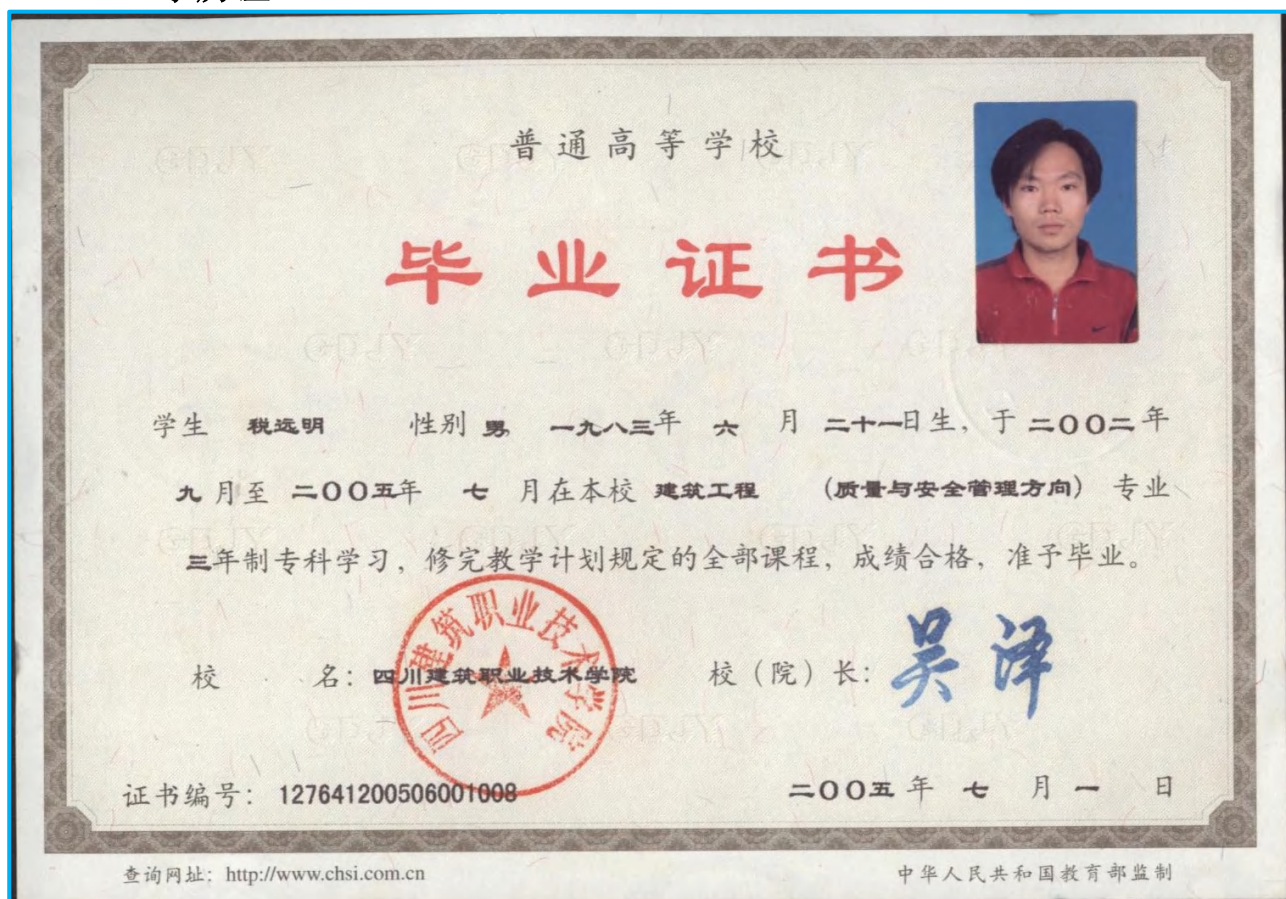 普通高等学校
毕业证书
学生 税远明 性别 男, 一九八三年 六 月 二十一日生, 于 二00二年
九 月至 二00五年 七 月在本校 建筑工程 (质量与安全管理方向) 专业
三年制专科学习, 修完教学计划规定的全部课程, 成绩合格, 准予毕业。
校 名: 四川建筑职业技术学院 校(院)长: 吴泽
四川建筑职业技术学院
证书编号: 127641200506001008 二00五 年 七 月 一 日
查询网址: http://www.chsi.com.cn 中华人民共和国教育部监制